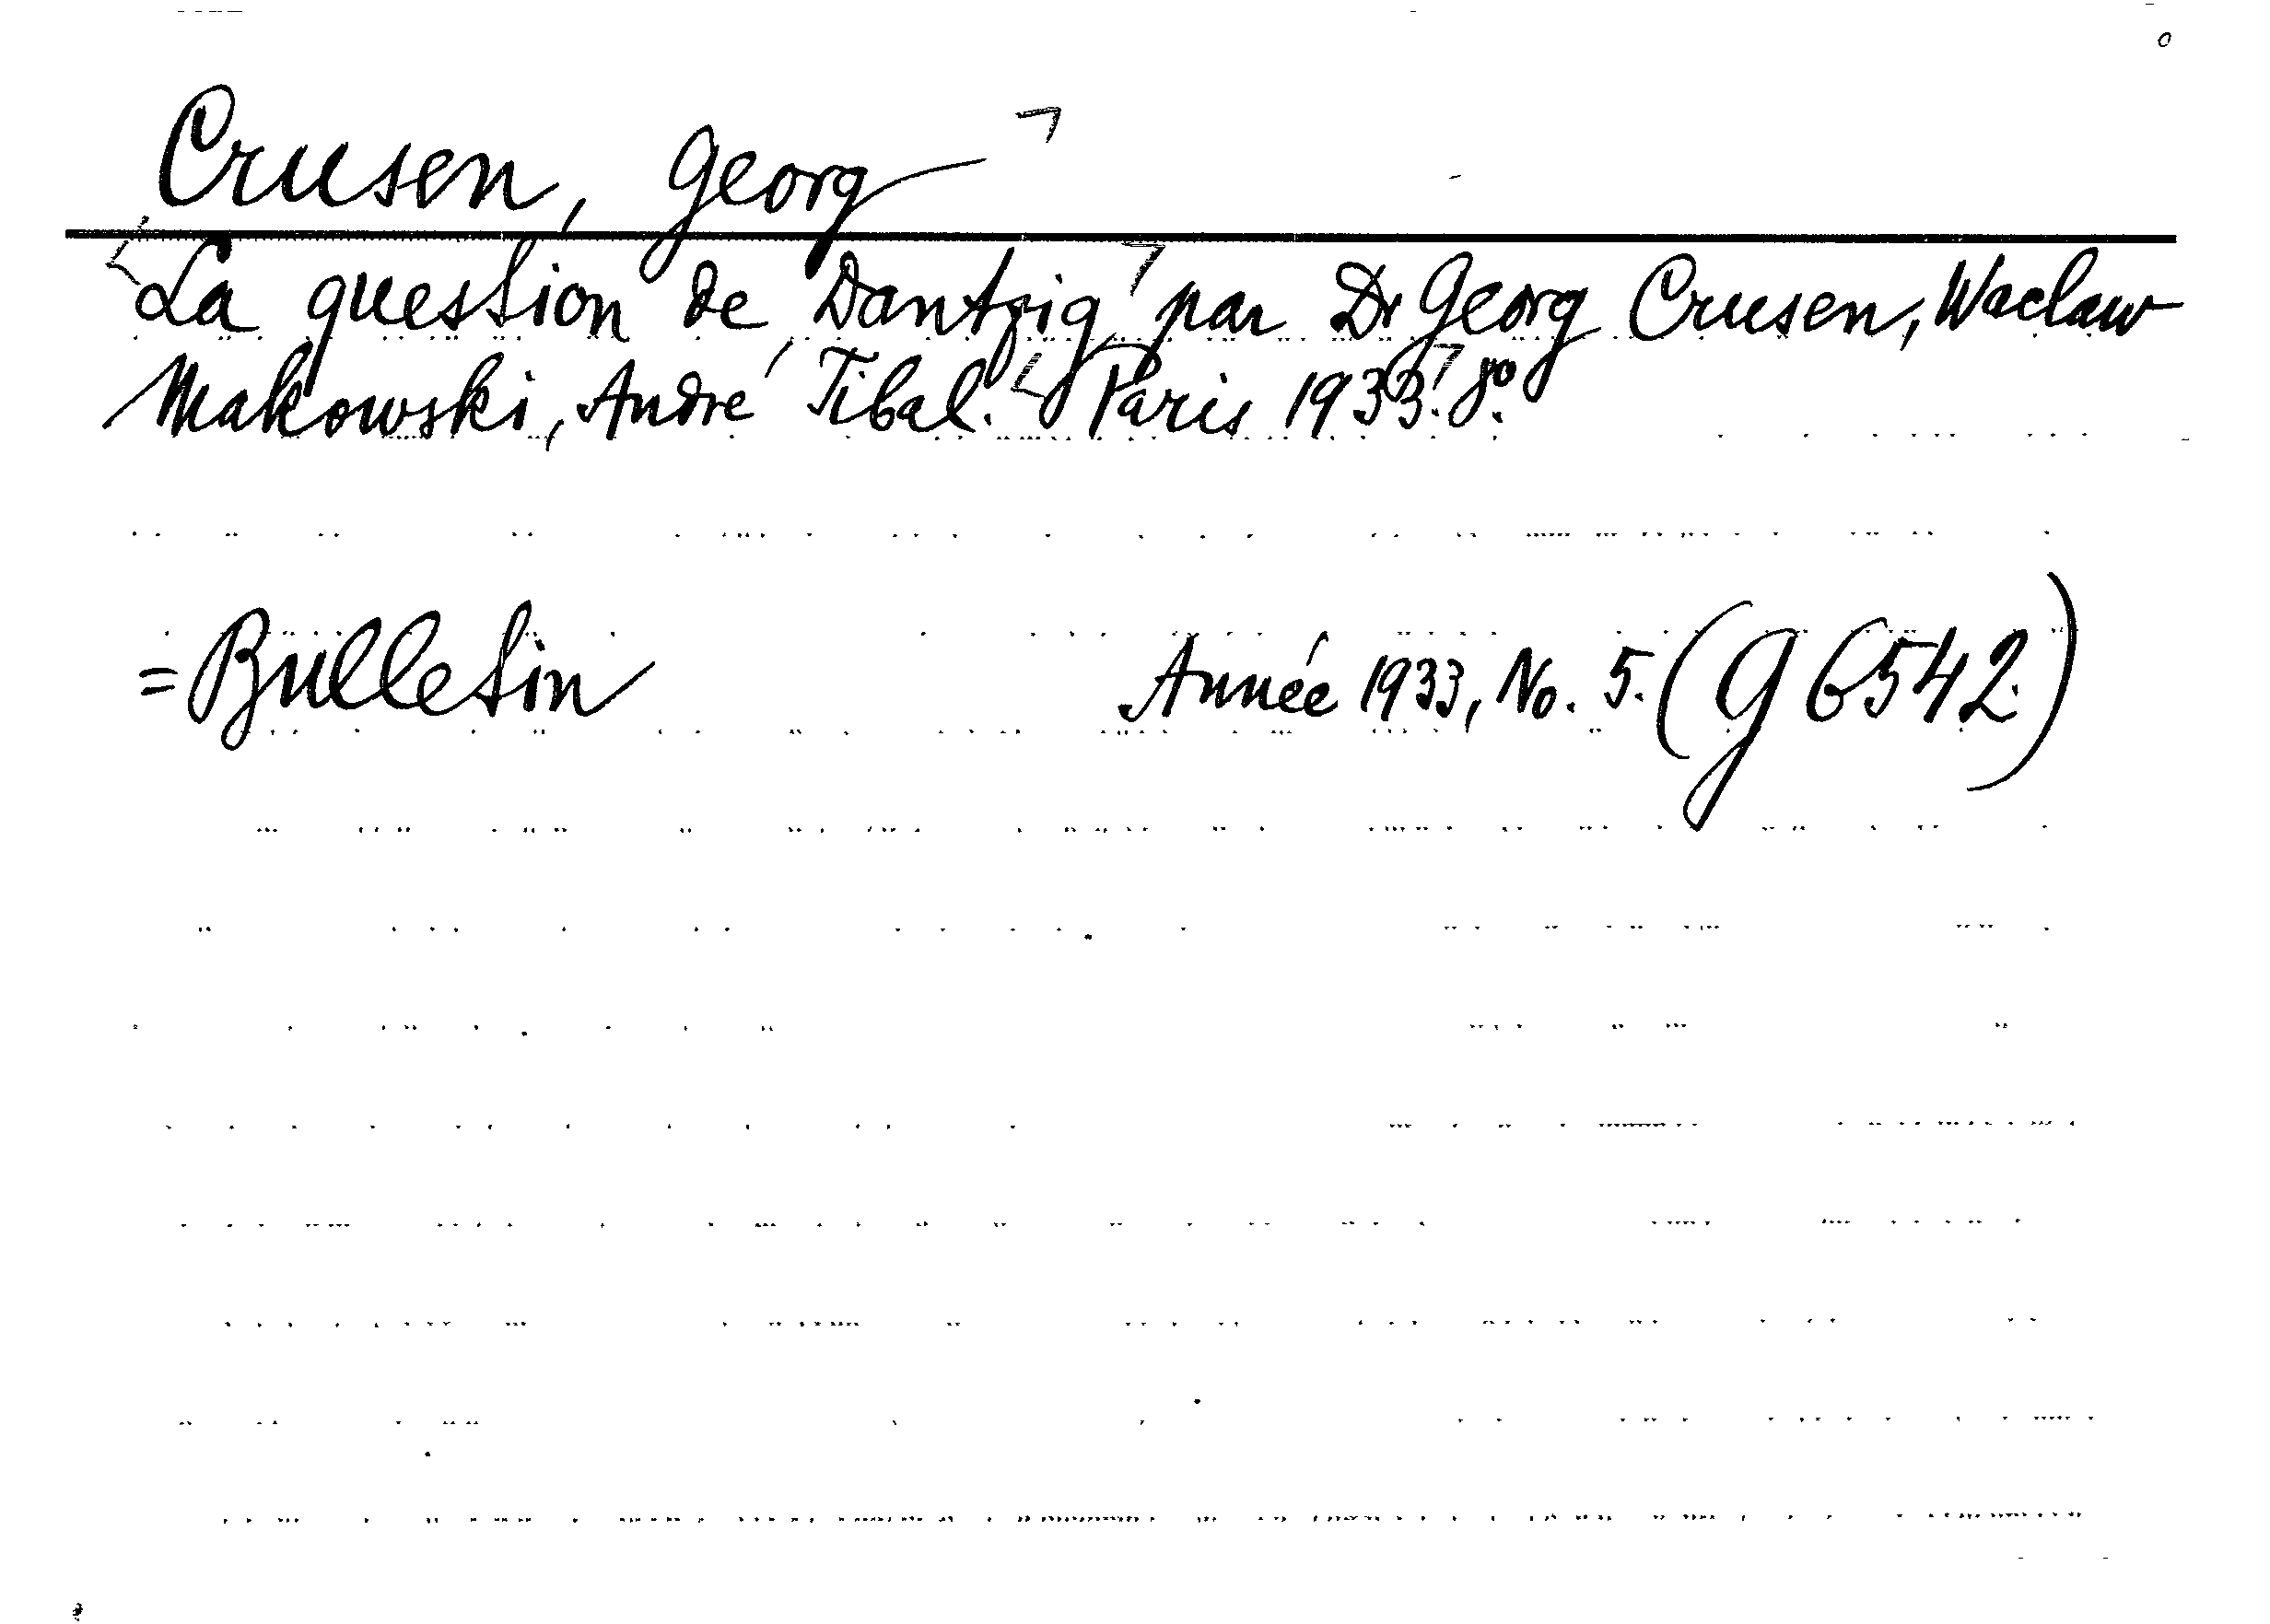 Crusen, Georg
La question de Dantzig par Dr Georg Crusen, Waclaw
Makowski, André Tibal. Paris 1933. 8o.
= Bulletin Année 1933, No. 5. (G 6542.)